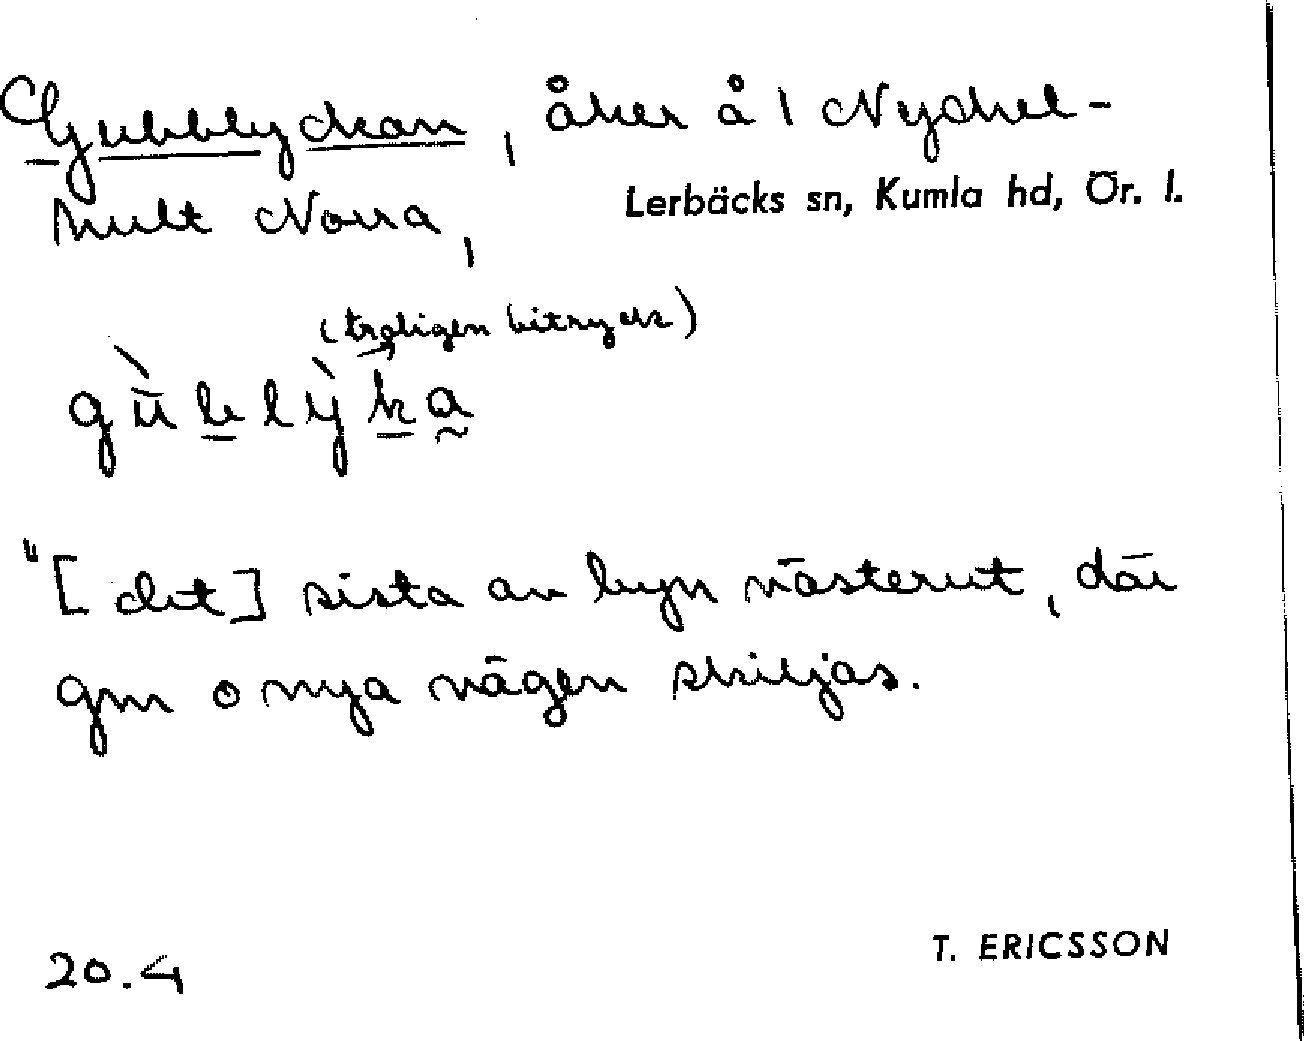 Gubblyckan, åker å 1 Nyckel-
hult Norra,
Lerbäcks sn, Kumla hd, Ör. l.
(troligen bitryck)
gùblỳka
"[det] sista av byn västerut, där
gm o nya vägen skiljas.
20.4
T. ERICSSON